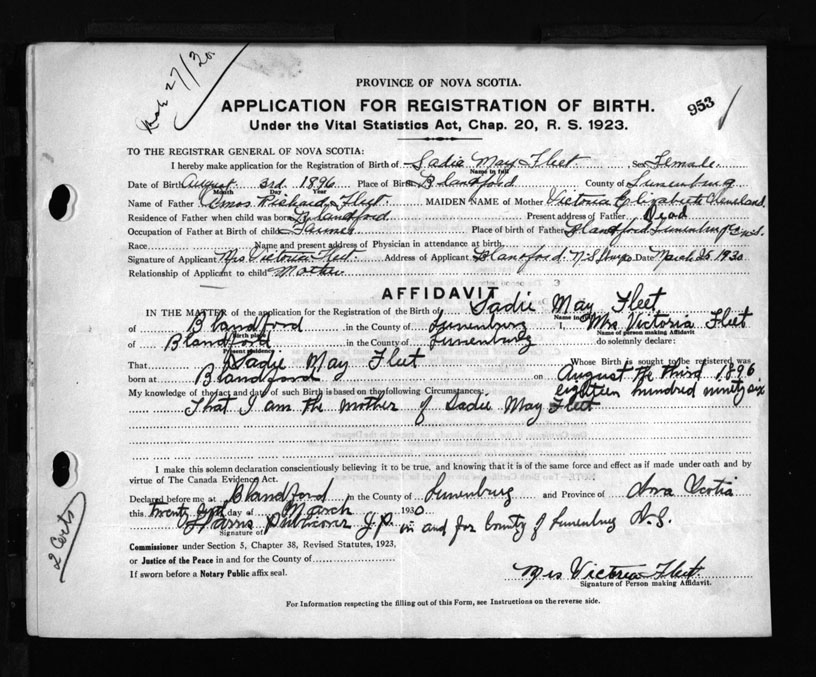 27/30
PROVINCE OF NOVA SCOTIA.
953
APPLICATION FOR REGISTRATION OF BIRTH.
Under the Vital Statistics Act, Chap. 20, R. S. 1923.
TO THE REGISTRAR GENERAL OF NOVA SCOTIA:
I hereby make application for the Registration of Birth of Sadie May Fleet Sex Female
Name in full
Date of Birth August 3rd 1896 Place of Birth Blandford County of Lunenburg
Month Day Year
Name of Father Amos Richard Fleet MAIDEN NAME of Mother Victoria Elizabeth Cleveland
Residence of Father when child was born Blandford Present address of Father Dead
Occupation of Father at Birth of child Farmer Place of birth of Father Blandford Lunenburg
Race Name and present address of Physician in attendance at birth
Signature of Applicant Mrs Victoria Fleet Address of Applicant Blandford N.S. Date March 25 1930
Relationship of Applicant to child Mother
AFFIDAVIT
IN THE MATTER of the application for the Registration of the Birth of Sadie May Fleet
Name in full
of Blandford in the County of Lunenburg I, Mrs Victoria Fleet
Birth place Name of person making Affidavit
of Blandford in the County of Lunenburg do solemnly declare:
Present residence
That Sadie May Fleet Whose Birth is sought to be registered was
born at Blandford on August the third 1896
eighteen hundred ninety six
My knowledge of the fact and date of such Birth is based on the following Circumstances:
That I am the mother of Sadie May Fleet
I make this solemn declaration conscientiously believing it to be true, and knowing that it is of the same force and effect as if made under oath and by
virtue of The Canada Evidence Act.
Declared before me at Blandford in the County of Lunenburg and Province of Nova Scotia
this twenty day of March 1930
Harris J.P. in and for County of Lunenburg N.S.
Signature of
Commissioner under Section 5, Chapter 38, Revised Statutes, 1923,
or Justice of the Peace in and for the County of
If sworn before a Notary Public affix seal.
Mrs Victoria Fleet
Signature of Person making Affidavit.
For Information respecting the filling out of this Form, see Instructions on the reverse side.
2 Certs